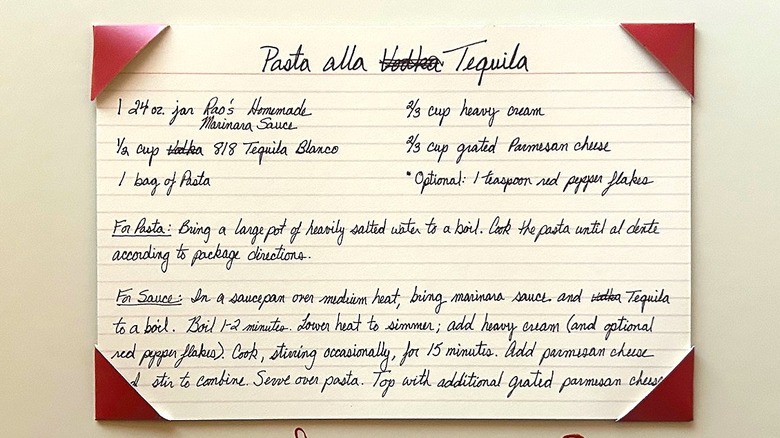 Pasta alla Vodka Tequila
1 24 oz. jar Rao's Homemade
Marinara Sauce
1/2 cup Vodka 818 Tequila Blanco
1 bag of Pasta
2/3 cup heavy cream
2/3 cup grated Parmesan cheese
*Optional: 1 teaspoon red pepper flakes
For Pasta: Bring a large pot of heavily salted water to a boil. Cook the pasta until al dente
according to package directions.
For Sauce: In a saucepan over medium heat, bring marinara sauce and vodka Tequila
to a boil. Boil 1-2 minutes. Lower heat to simmer; add heavy cream (and optional
red pepper flakes). Cook, stirring occasionally, for 15 minutes. Add parmesan cheese
d stir to combine. Serve over pasta. Top with additional grated parmesan cheese